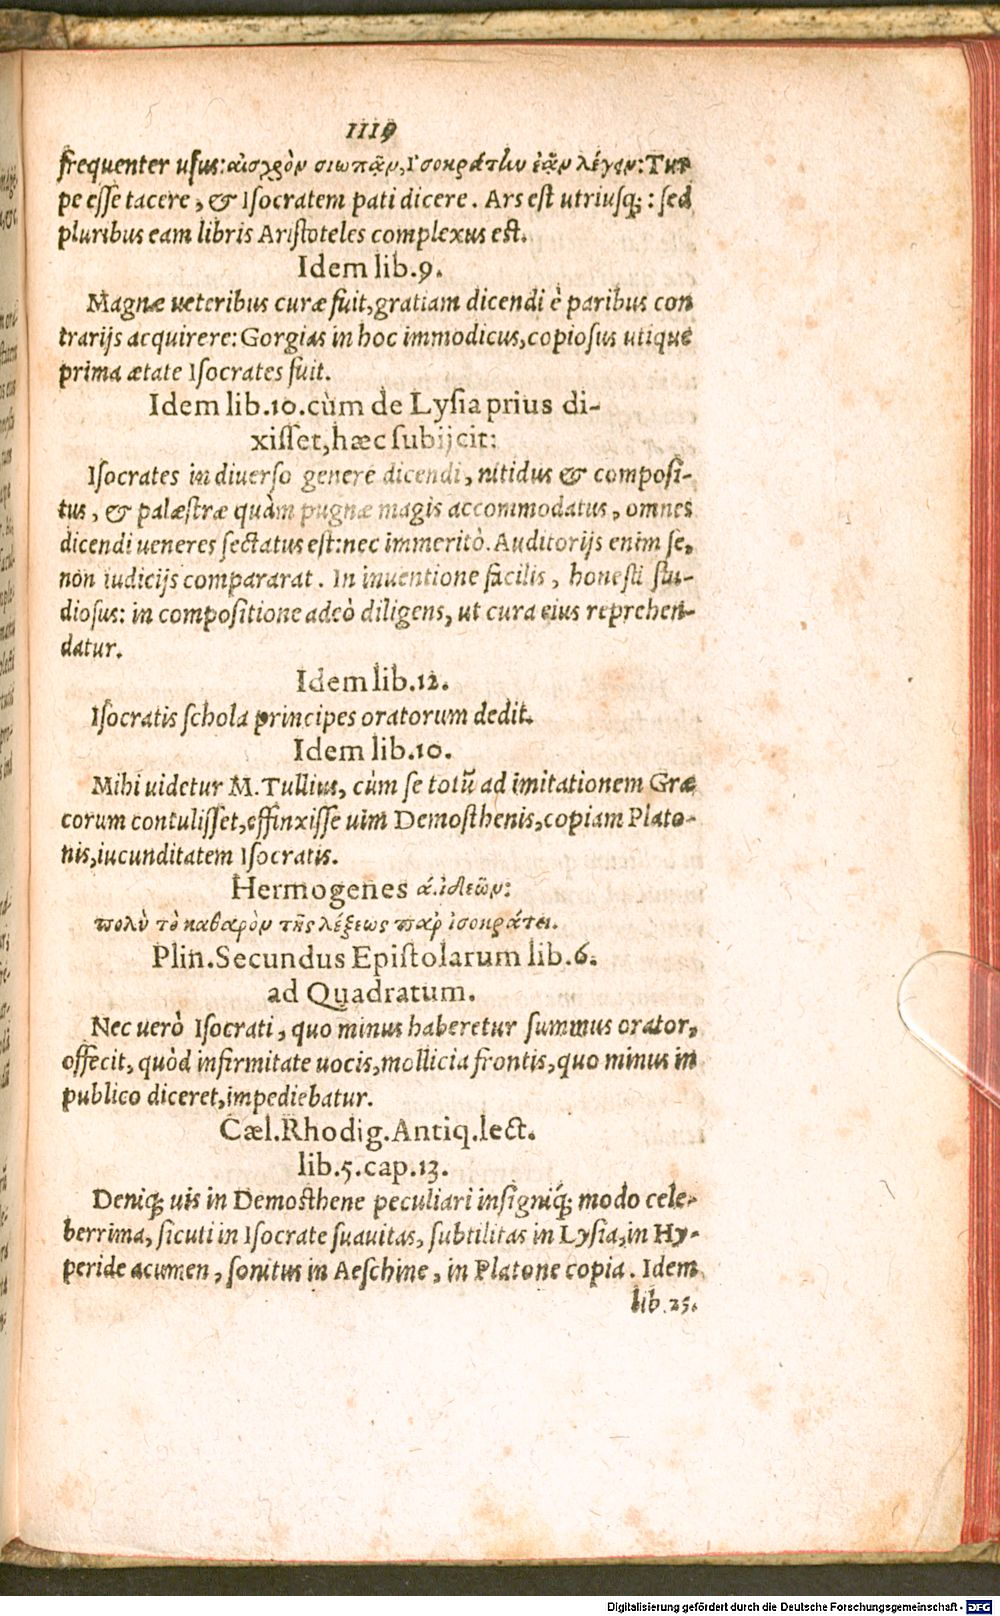 1119
frequenter usus: αἰσχρὸν σιωπᾶν, Ἰσοκράτην ἐᾶν λέγειν: Tur
pe esse tacere, & Isocratem pati dicere. Ars est utriusq;: sed
pluribus eam libris Aristoteles complexus est.
Idem lib.9.
Magnæ ueteribus curæ fuit, gratiam dicendi è paribus con
trarijs acquirere: Gorgias in hoc immodicus, copiosus utique
prima ætate Isocrates fuit.
Idem lib.10. cùm de Lysia prius di-
xisset, hæc subijcit:
Isocrates in diuerso genere dicendi, nitidus & composi-
tus, & palæstræ quàm pugnæ magis accommodatus, omnes
dicendi ueneres sectatus est: nec immeritò. Auditorijs enim se,
non iudicijs compararat. In inuentione facilis, honesti stu-
diosus: in compositione adeò diligens, ut cura eius reprehen-
datur.
Idem lib.12.
Isocratis schola principes oratorum dedit.
Idem lib.10.
Mihi uidetur M. Tullius, cùm se totũ ad imitationem Græ
corum contulisset, effinxisse uim Demosthenis, copiam Plato-
nis, iucunditatem Isocratis.
Hermogenes ά. ἰδεῶν:
πολὺ τὸ καθαρὸν τῆς λέξεως παρ' ἰσοκράτει.
Plin. Secundus Epistolarum lib.6.
ad Quadratum.
Nec uerò Isocrati, quo minus haberetur summus orator,
offecit, quòd infirmitate uocis, mollicia frontis, quo minus in
publico diceret, impediebatur.
Cæl. Rhodig. Antiq. lect.
lib.5. cap.13.
Deniq; uis in Demosthene peculiari insigniq́; modo cele-
berrima, sicuti in Isocrate suauitas, subtilitas in Lysia, in Hy-
peride acumen, sonitus in Aeschine, in Platone copia. Idem
lib.25.
Digitalisierung gefördert durch die Deutsche Forschungsgemeinschaft - DFG